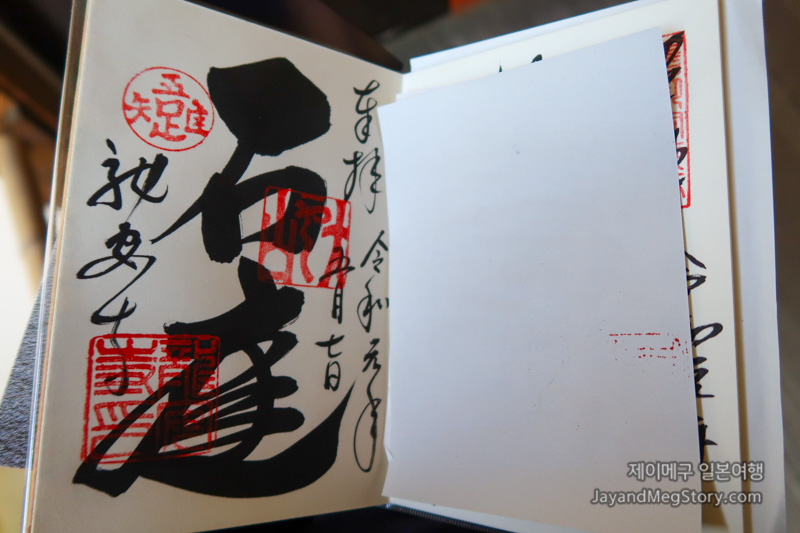 奉拝 令和元年
五月七日
石庭
吾唯足知
龍安寺
제이메구 일본여행
JayandMegStory.com